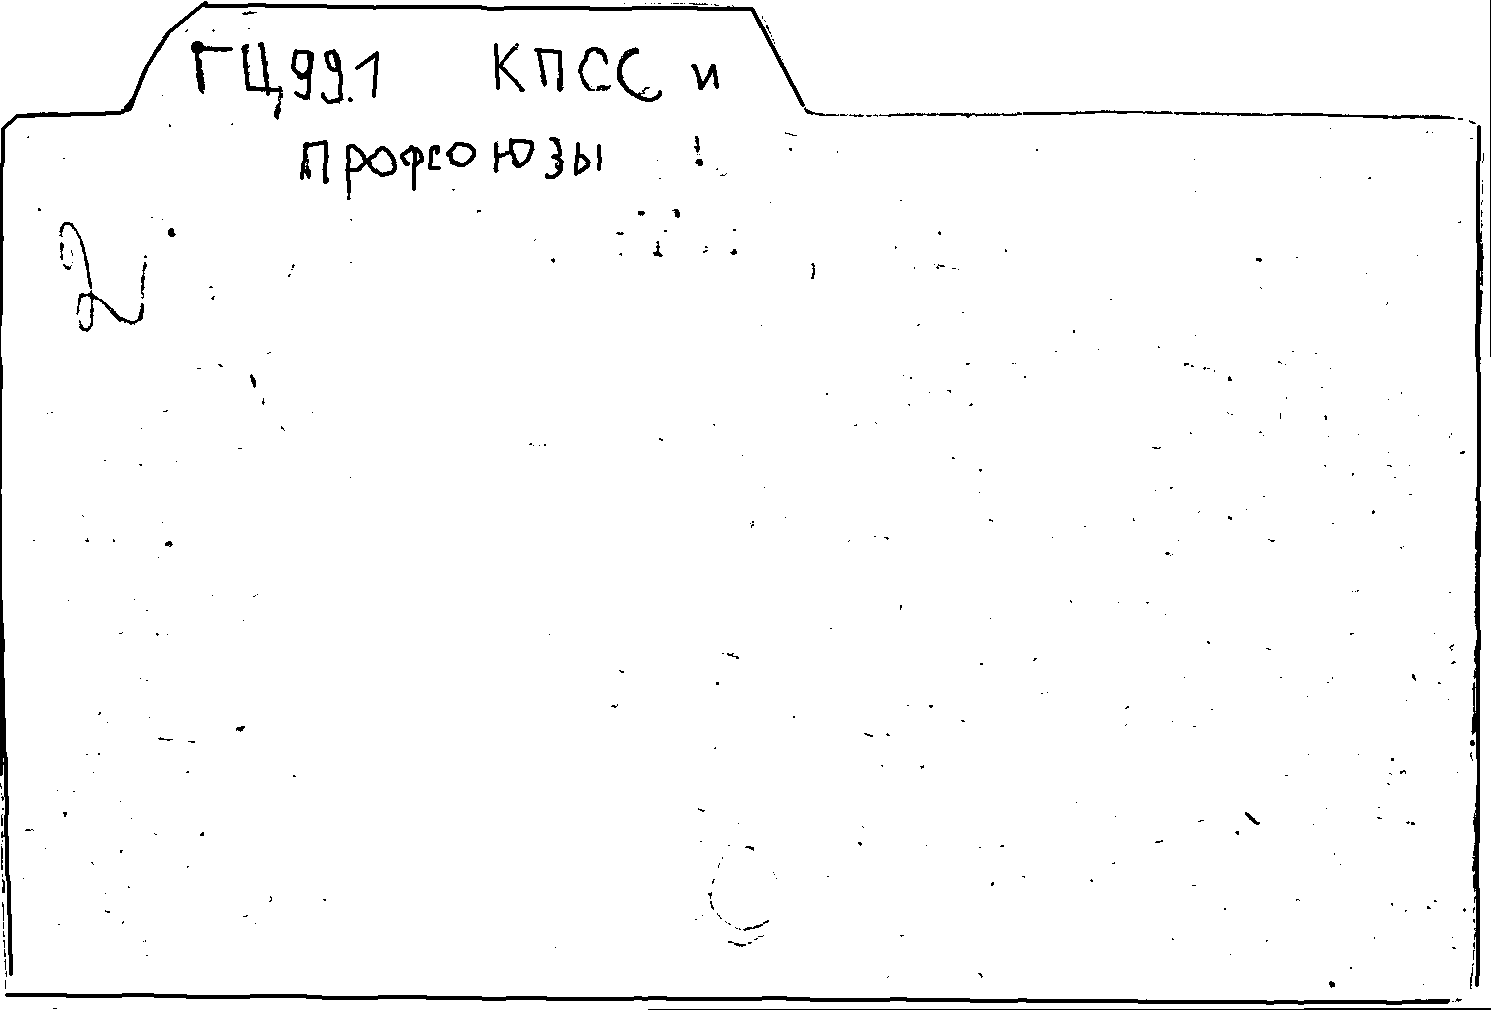 ГЦ99.1 КПСС и
профсоюзы
2